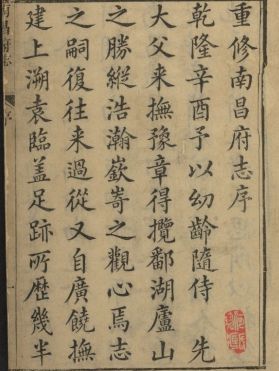 重修南昌府志序
乾隆辛酉予以幼齡隨侍 先
大父来撫豫章得攬鄱湖廬山
之勝縱浩瀚嶔竒之觀心焉志
之嗣復往来過從又自廣饒撫
建上溯袁臨盖足跡所歴幾半
南昌府志
序
一